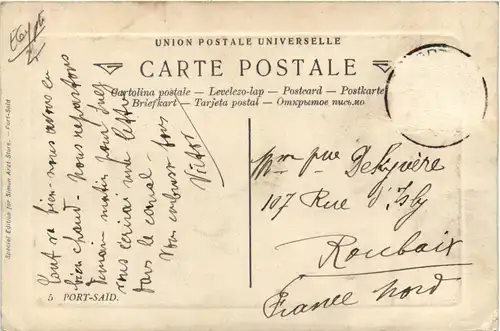 Egypte
UNION POSTALE UNIVERSELLE
CARTE POSTALE
Cartolina postale — Levelezo-lap — Postcard — Postkarte
Briefkart — Tarjeta postal — Открытое письмо
Special Edition for Simon Arzt Store. - Port-Saïd
Tout va bien - nous avons eu
bien chaud - nous repartons
demain matin pour Suez
vous écrirai une lettre
dans le canal -
Vous embrasse tous
Victor
5 PORT-SAÏD.
Dekyvère
107 Rue d'Isly
Roubaix
France Nord